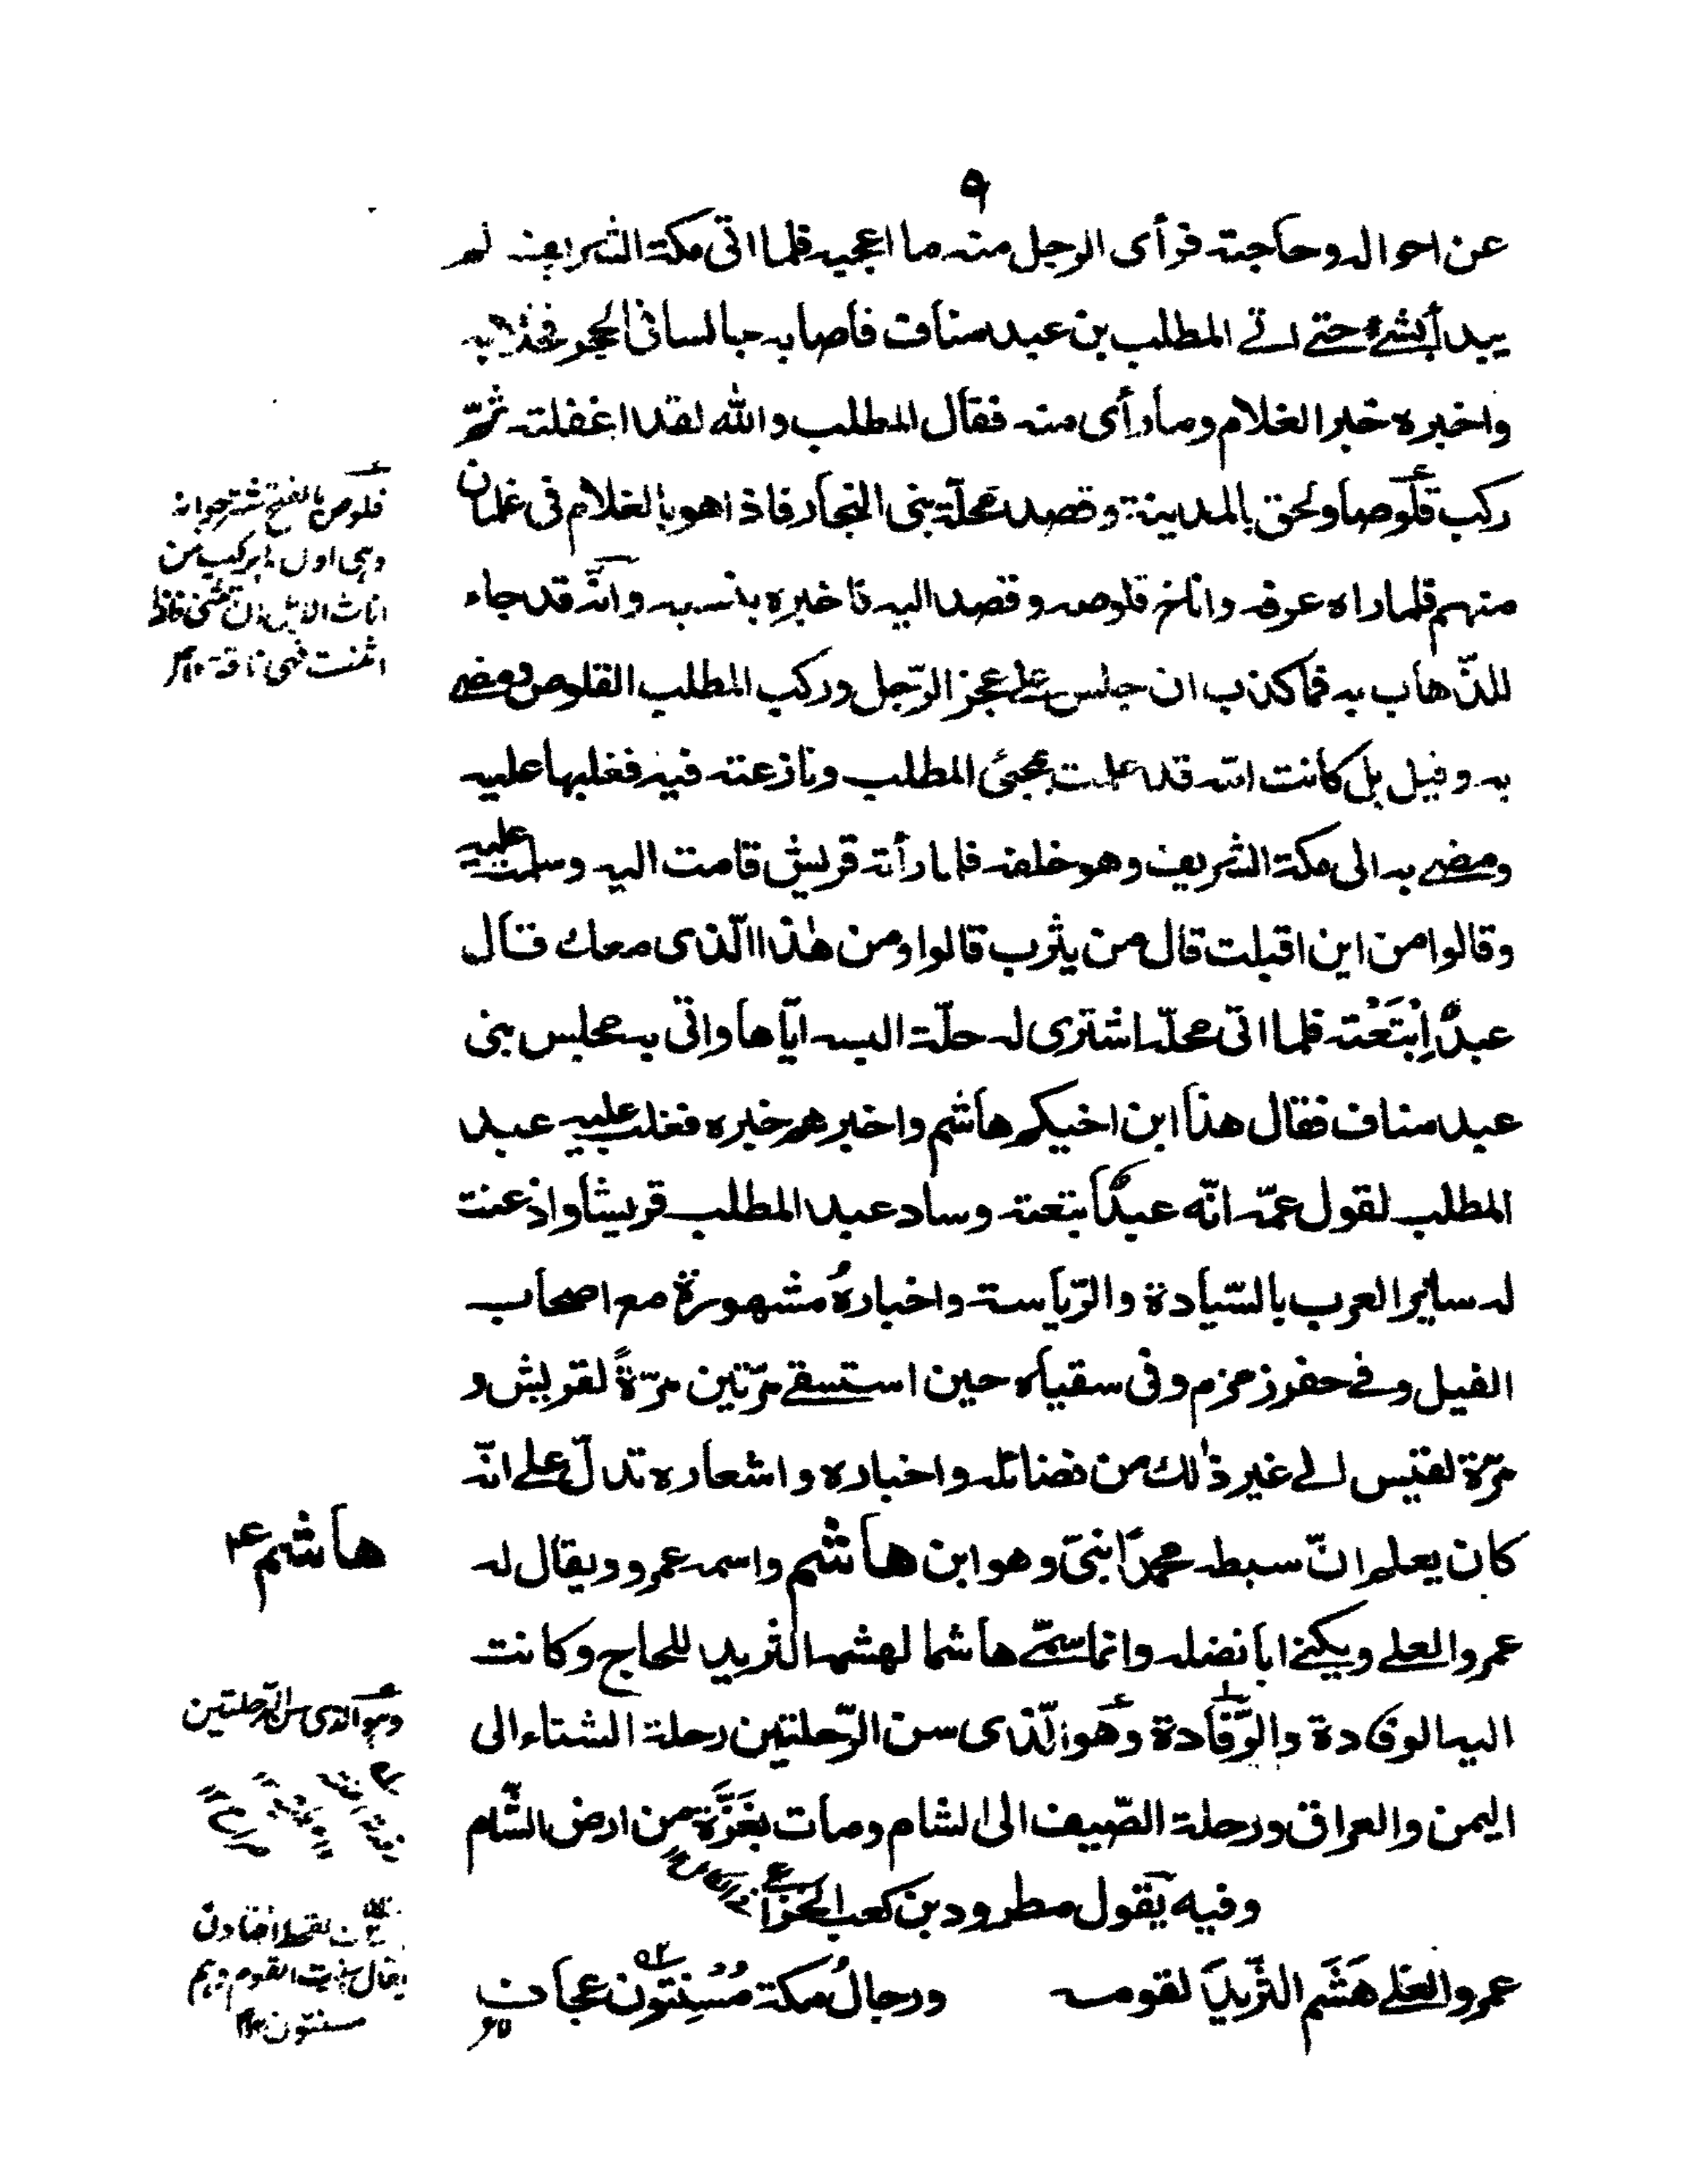 ٩
عن احواله وحاجته فرأى الرجل منه ما اعجبه فلما اتى مكة الشريفة لم
يبدأ بشئ حتے اتے المطلب بن عبد مناف فاصابه جالسا فى الحجر
واخبره خبر الغلام وما رأى منه فقال المطلب والله لقد اغفلته ثمّ
ركب قلوصا ولحق بالمدينة وقصد محلّة بنى النجار فاذا هو بالغلام فى غلمان
منهم فلما راه عرفه واناخ قلوصه وقصد اليه فاخبره بنسبه وانّه قد جاء
للذّهاب به فما كذب ان جلس علے عجز الرّحل وركب المطلب القلوص ومضے
به وقيل بل كانت امّه قد علمت بمجئ المطلب ونازعته فيه فغلبها عليه
ومضے به الى مكة الشريفة وهو خلفه فلما رأته قريش قامت اليه وسلمت عليه
وقالوا من اين اقبلت قال من يثرب قالوا ومن هٰذا الّذى معك قال
عبدٌ اِبْتَعْته فلما اتى محلّه اشترى له حلّة البسه ايّاها واتى به مجلس بنى
عبد مناف فقال هذا ابن اخيكم هاشم واخبرهم خبره فغلب عليه عبد
المطلب لقول عمّه انّه عبدٌ ابتعته وساد عبد المطلب قريشا واذعنت
له سائر العرب بالسّيادة والرّياسة واخبارهُ مشهورة مع اصحاب
الفيل وفے حفر زمزم وفى سقياه حين استسقے مرّتين مرّةً لقريش و
مرّة لقيس الے غير ذٰلك من فضائله واخباره واشعاره تدلّ علے انّه
كان يعلم انّ سبطه محمدًا نبىّ وهو ابن هاشم واسمه عمرو ويقال له
هاشم
عمرو العلے ويكنے ابا نضله وانما سمّے هاشما لهشمه الثريد للحاج وكانت
اليه الوفادة والرّفادة وهو الّذى سن الرّحلتين رحلة الشتاء الى
اليمن والعراق ورحلة الصّيف الى الشام ومات بغَزَّة من ارض الشّام
وفيه يقول مطرود بن كعب الخزاعے
عمرو العلے هَشَم الثّريدَ لقومه ورجالُ مكة مُسْنِتُون عجاف
قلوص بالفتح شتر جوانه
وهى اول ما يركب من
اناث الابل الى ان تثنى فاذا
اثنت فهى ناقة ١٢
وهو الذى سن الرحلتين
يقال اسنت القوم وهم
مسنتون ١٢